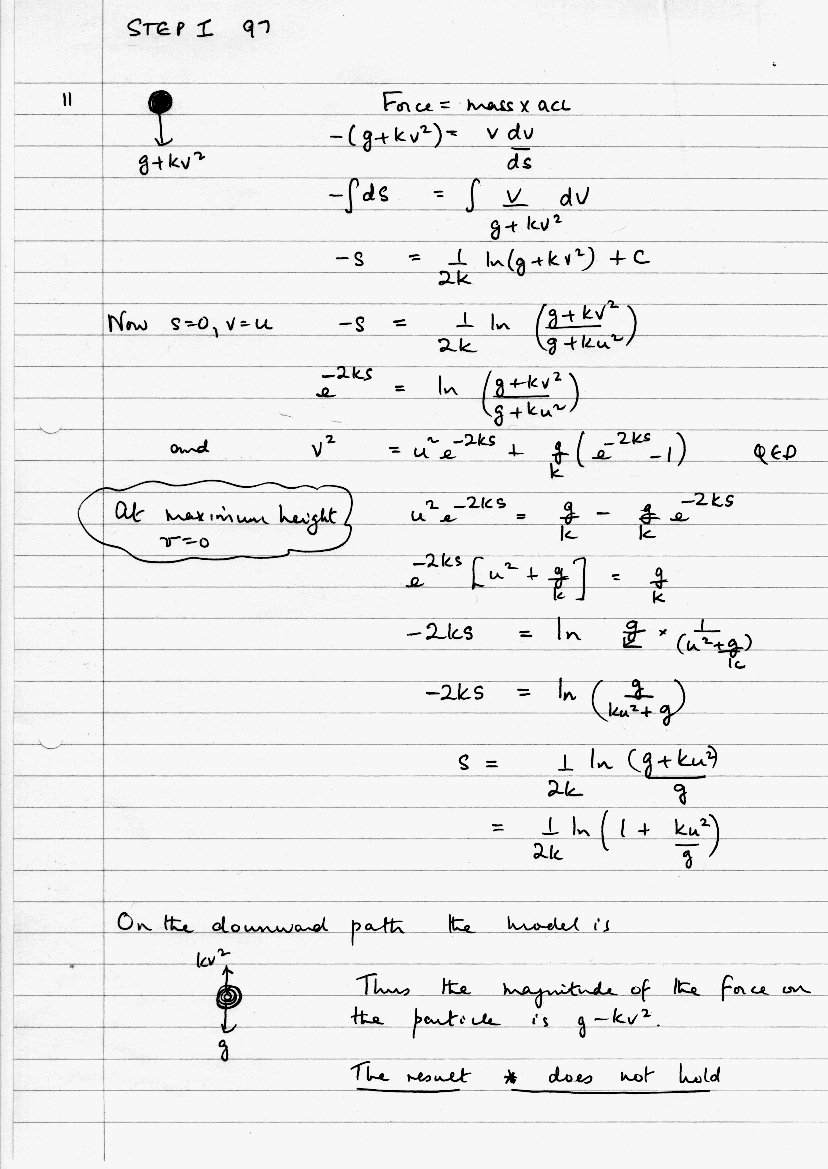 STEP I 97
11
g+kv²
Force = mass x acc
-(g+kv²) = v dv/ds
-∫ds = ∫ v/(g+kv²) dv
-s = 1/2k ln(g+kv²) + c
Now s=0, v=u -s = 1/2k ln ((g+kv²)/(g+ku²))
e^-2ks = ln ((g+kv²)/(g+ku²))
and v² = u²e^-2ks + g/k (e^-2ks -1) QED
At maximum height
v=0
u²e^-2ks = g/k - g/k e^-2ks
e^-2ks [u² + g/k] = g/k
-2ks = ln g/k × 1/(u²+g/k)
-2ks = ln (g/(ku²+g))
s = 1/2k ln (g+ku²)/g
= 1/2k ln (1 + ku²/g)
On the downward path the model is
kv²
g
Thus the magnitude of the force on
the particle is g-kv².
The result * does not hold